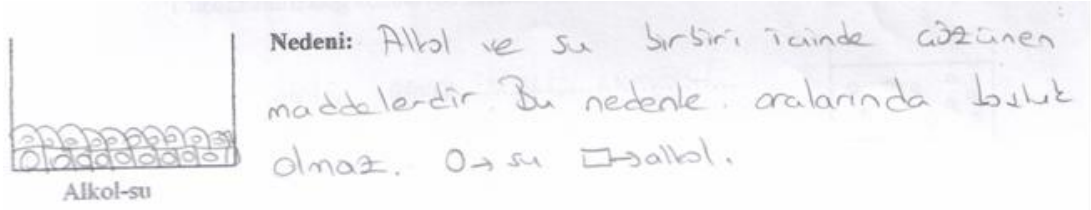 Nedeni: Alkol ve su birbiri içinde çözünen
maddelerdir. Bu nedenle aralarında boşluk
olmaz. O→ su □→alkol.
Alkol-su